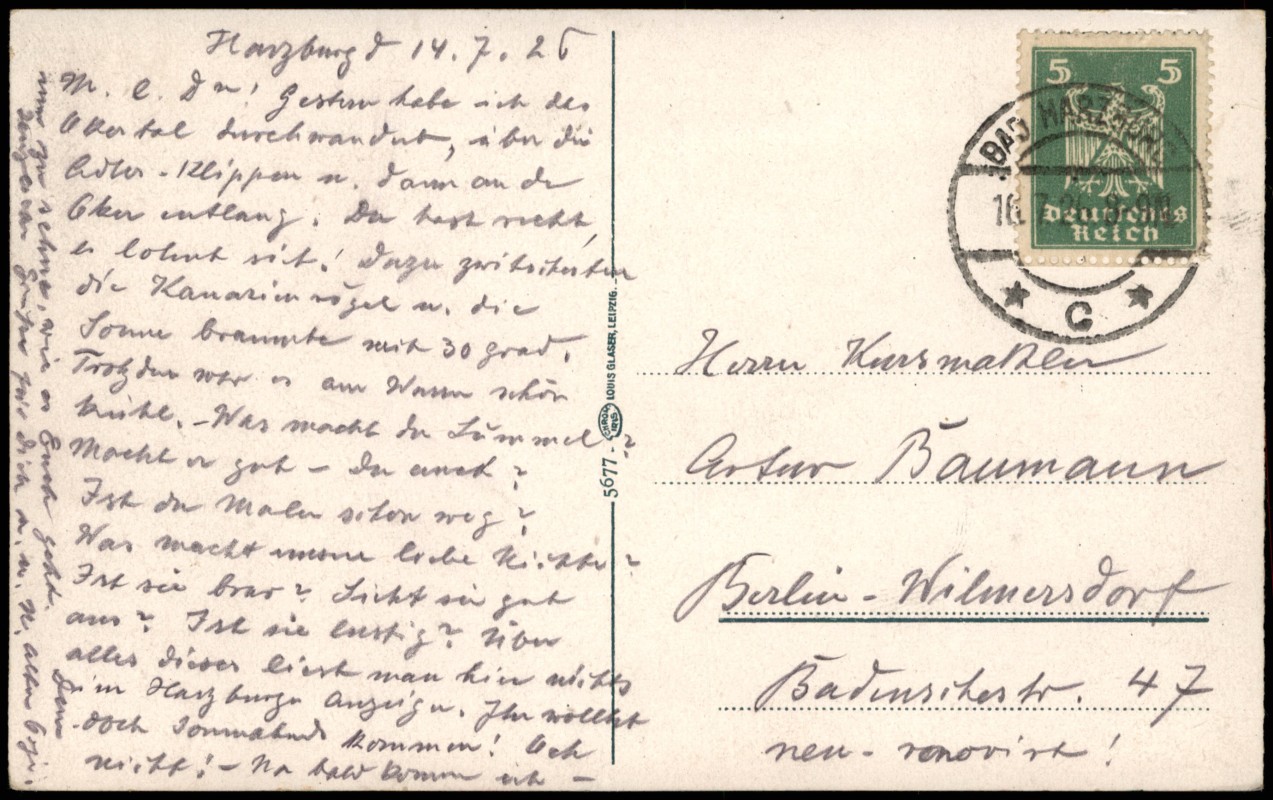 Harzburg d 14.7.26
M. l. Du! Gestern habe ich das
Okertal durchwandert, über die
Adler-Klippen u. dann an der
Oker entlang. Du hast recht,
es lohnt sich! Dazu zwitscherten
die Kanarienvögel u. die
Sonne brannte mit 30 grad.
Trotzdem war es am Wasser schön
kühl. - Was macht der Lümmel?
Macht er gut - Du auch?
Ist der Maler schon weg?
Was macht unsere liebe Nichte?
Ist sie brav? Sieht sie gut
aus? Ist sie lustig? Über
alles dieses liest man hier nichts
im Harzburger Anzeiger. Ihr wolltet
doch Sonnabend kommen! Och
nicht! - Na bald komm ich -
um zu sehen, wie es Euch geht.
Grüsse für Dich u. u. N. alter
Dein
5677 - CHROMO 1925 LOUIS GLASER, LEIPZIG.
5 5
Deutsches
Reich
BAD HARZBURG
16.7.26. 8-9
C
Herrn Kursmakler
Artur Baumann
Berlin-Wilmersdorf
Badenschestr. 47
neu-renoviert!